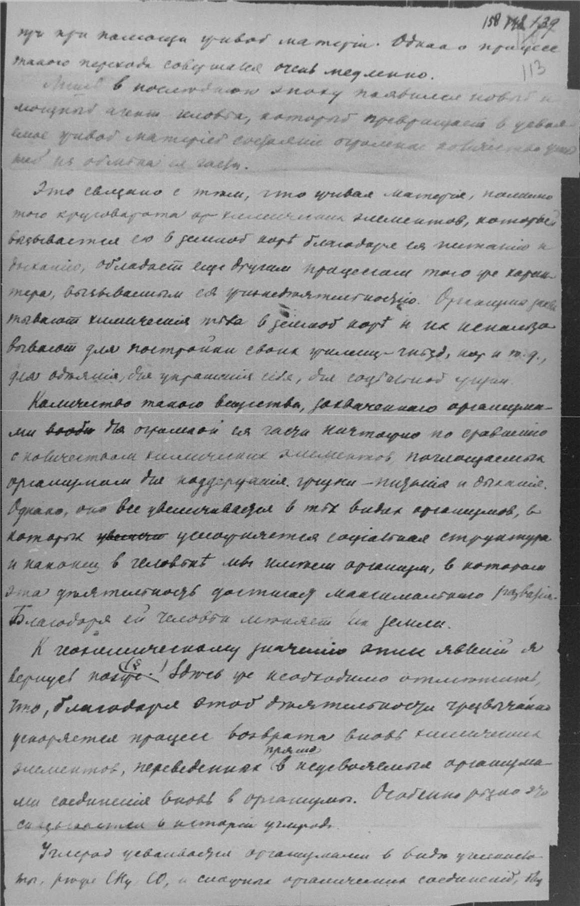 158 139
113
при помощи живой матеріи. Однако процесс
такого перехода совершался очень медленно.
в последнюю эпоху появился новый и
мощный агент человек, который превращает в
живой матеріей огромные количества
из обмена ея
Это связано с тем, что живая матерія, помимо
того круговорота химических элементов, который
вызывается ею в земной коре благодаря ея питанію и
дыханію, обладает еще другим процессом того же харак-
тера, вызываемым ея жизнедеятельностью. Организмы захва-
тывают химическія тела в земной коре и их использо-
вывают для постройки своих жилищ - гнезд, нор и т.д.,
для одеянія, для украшенія себя, для
Количество такого вещества, захваченного организма-
ми для огромной ея части ничтожно по сравненію
с количеством химических элементов, поглощаемых
организмом для поддержанія жизни - питанія и дыханія.
Однако, оно все увеличивается в тех видах организмов, в
которых усложняется соціальная структура
и наконец в человеке мы имеем организм, в котором
эта деятельность достигла максимального развитія.
Благодаря ей человек меняет лик земли.
К геохимическому значенію этих явленій я
вернусь позже. Здесь же необходимо отметить,
что, благодаря этой деятельности чрезвычайно
ускоряется процесс возврата вновь химических
прямо
элементов, переведенных в неусвояемыя организма-
ми соединенія вновь в организмы. Особенно резко это
сказывается в исторіи углерода.
Углерод усваивается организмами в виде углекисло-
ты, CH₄, CO, и сложных органических соединеній,